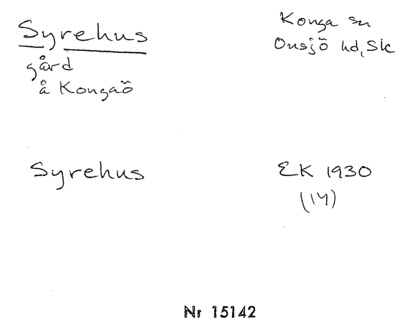 Syrehus
gård
å Kongaö
Konga sn
Onsjö hd, Sk
Syrehus
EK 1930
(14)
Nr 15142